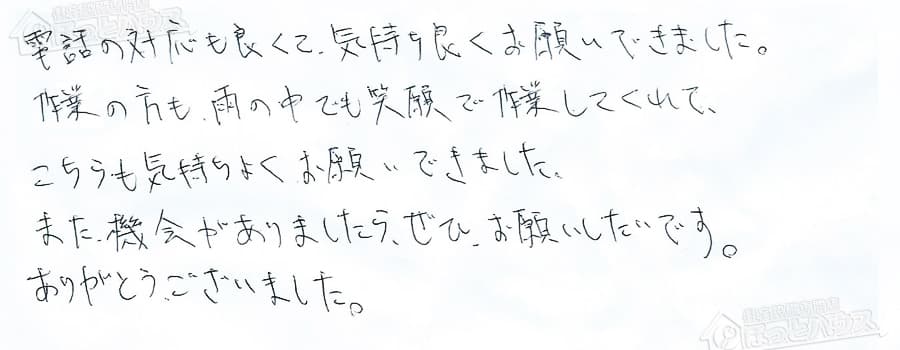 電話の対応も良くて、気持ち良くお願いできました。
作業の方も、雨の中でも笑顔で作業してくれて、
こちらも気持ちよく、お願いできました。
また、機会がありましたら、ぜひ、お願いしたいです。
ありがとうございました。
ほっとハウス